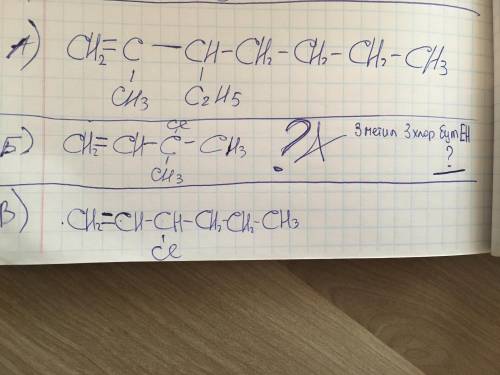 А) CH2=C — CH-CH2-CH2-CH2-CH3
CH3 C2H5
Б) CH2=CH-C-CH3 ? 3 метил 3 хлор бутЕН
Cl
CH3 ?
В) CH2=CH-CH-CH2-CH2-CH3
Cl